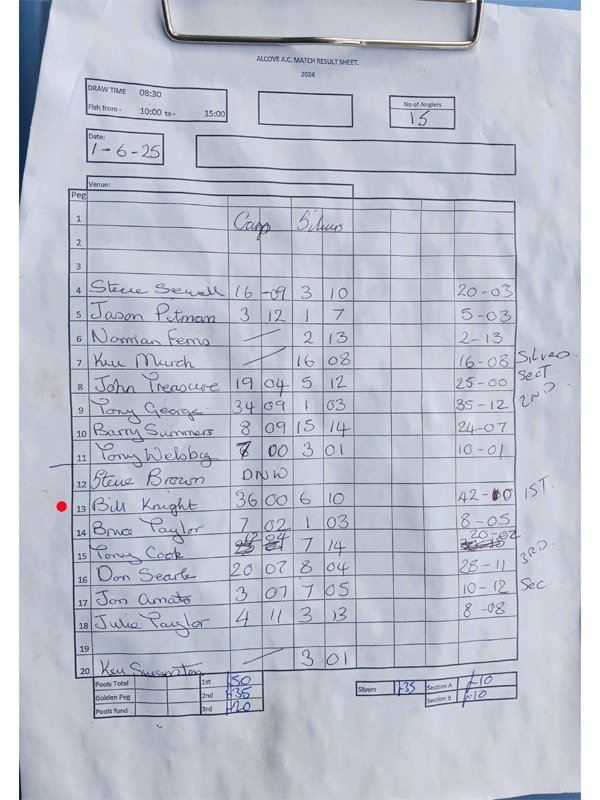 ALCOVE A.C. MATCH RESULT SHEET.
2024
DRAW TIME 08:30
Fish from - 10:00 to - 15:00
No of Anglers
15
Date:
1-6-25
Venue:
Peg
1 Carp Silvers
2
3
4 Steve Sewell 16 -09 3 10 20-03
5 Jason Pitman 3 12 1 7 5-03
6 Norman Ferris — 2 13 2-13
7 Ken Murch — 16 08 16-08 Silvers
8 John Treasure 19 04 5 12 25-00 Sect
9 Tony George 34 09 1 03 35-12 2ND
10 Barry Summers 8 09 15 14 24-07
11 Tony Welsby 7 00 3 01 10-01
12 Steve Brown DNW
13 Bill Knight 36 00 6 10 42-10 1ST.
14 Bruce Taylor 7 02 1 03 8-05
15 Tony Cook 12 04 7 14 20-02
16 Don Searle 20 07 8 04 28-11 3RD.
17 Jon Amato 3 07 7 05 10-12 Sec
18 Julie Taylor 4 11 3 13 8-08
19
20 Ken Swanston — 3 01
Pools Total 1st £50
Golden Peg 2nd £35
Pools fund 3rd £20
Silvers £35 Section A £10
Section B £10